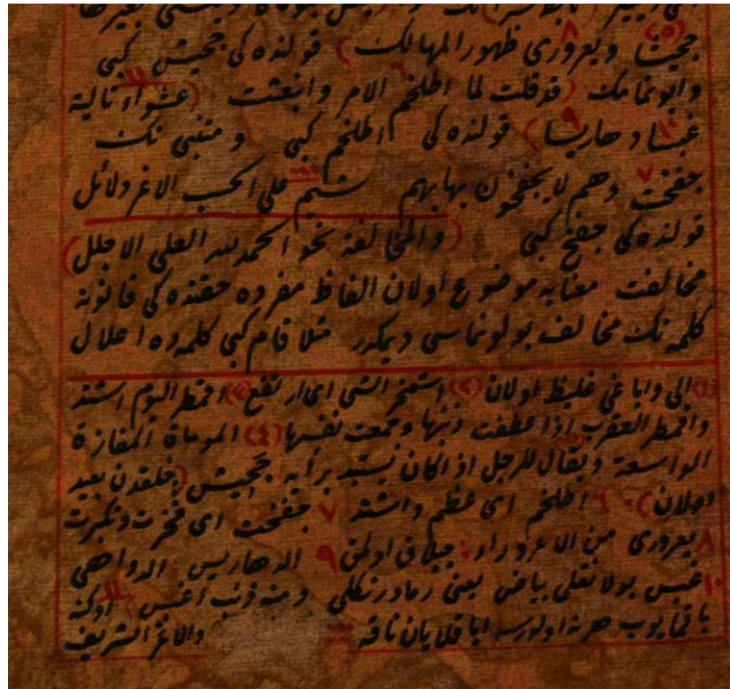 جحيشا ويعرورى ظهور المهالك) قولنده كى جحيش كبى
وابو تمامك (قد قلت لما اطلخم الامر وانبعثت. (عشواء تالية
غبسا دهاريسا) قولنده كى اطلخم كبى و متنبى نك
جفخت وهم لا يجفخون بها بهم شيم على الحسب الاغر دلائل
قولنده كى جفخ كبى (والمخالفة نحو الحمد لله العلى الاجلل)
مخالفت معنايه موضوع اولان الفاظ مفرده حقنده كى قانونه
كلمه نك مخالف بولونماسى ديمكدر مثلا قام كبى كلمه ده اعلال
(١) الى واباغى غليظ اولان (٢) اشمخر الشى اى ارتفع (٣) اقمطر اليوم اشتد
واقمطر العقرب اذا عطفت ذنبها وجمعت نفسها (٤) الموماة المفازة
الواسعة ويقال للرجل اذا كان يستبد برأيه جحيش (خلقدن بعيد
اولان). ٦ اطلخم اى عظم واشتد ٧ جفخت اى فخرت وتكبرت
٨ يعرورى من الاعروراء: چپلاق اولمق ٩ الدهاريس: الدواهى
١٠ غبس بولانقلى بياض يعنى رماد رنكلى ومنه ذئب اغبس ١١ اوكنه
باقمايوب هرنه اولورسه اياقلايان ناقه والاغر الشريف